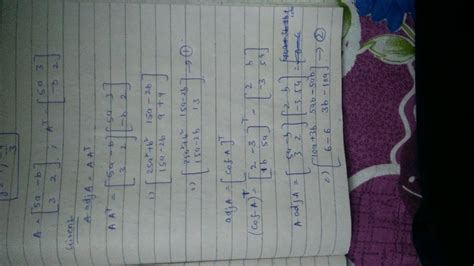 Given:
A = [5a -b
3 2] ; A^T = [5a 3
-b 2]
A adj A = A A^T
A A^T = [5a -b
3 2] [5a 3
-b 2]
=) [25a²+b² 15a-2b
15a-2b 9+4]
=) [25a²+b² 15a-2b
15a-2b 13] → ①
adj A = [cof A]^T
(cof A)^T = [2 -3
b 5a]^T = [2 b
-3 5a]
A adj A = [5a -b
3 2] [2 b
-3 5a]
=) [10a+3b 5ab-5ab
6-6 3b+10a] → ②